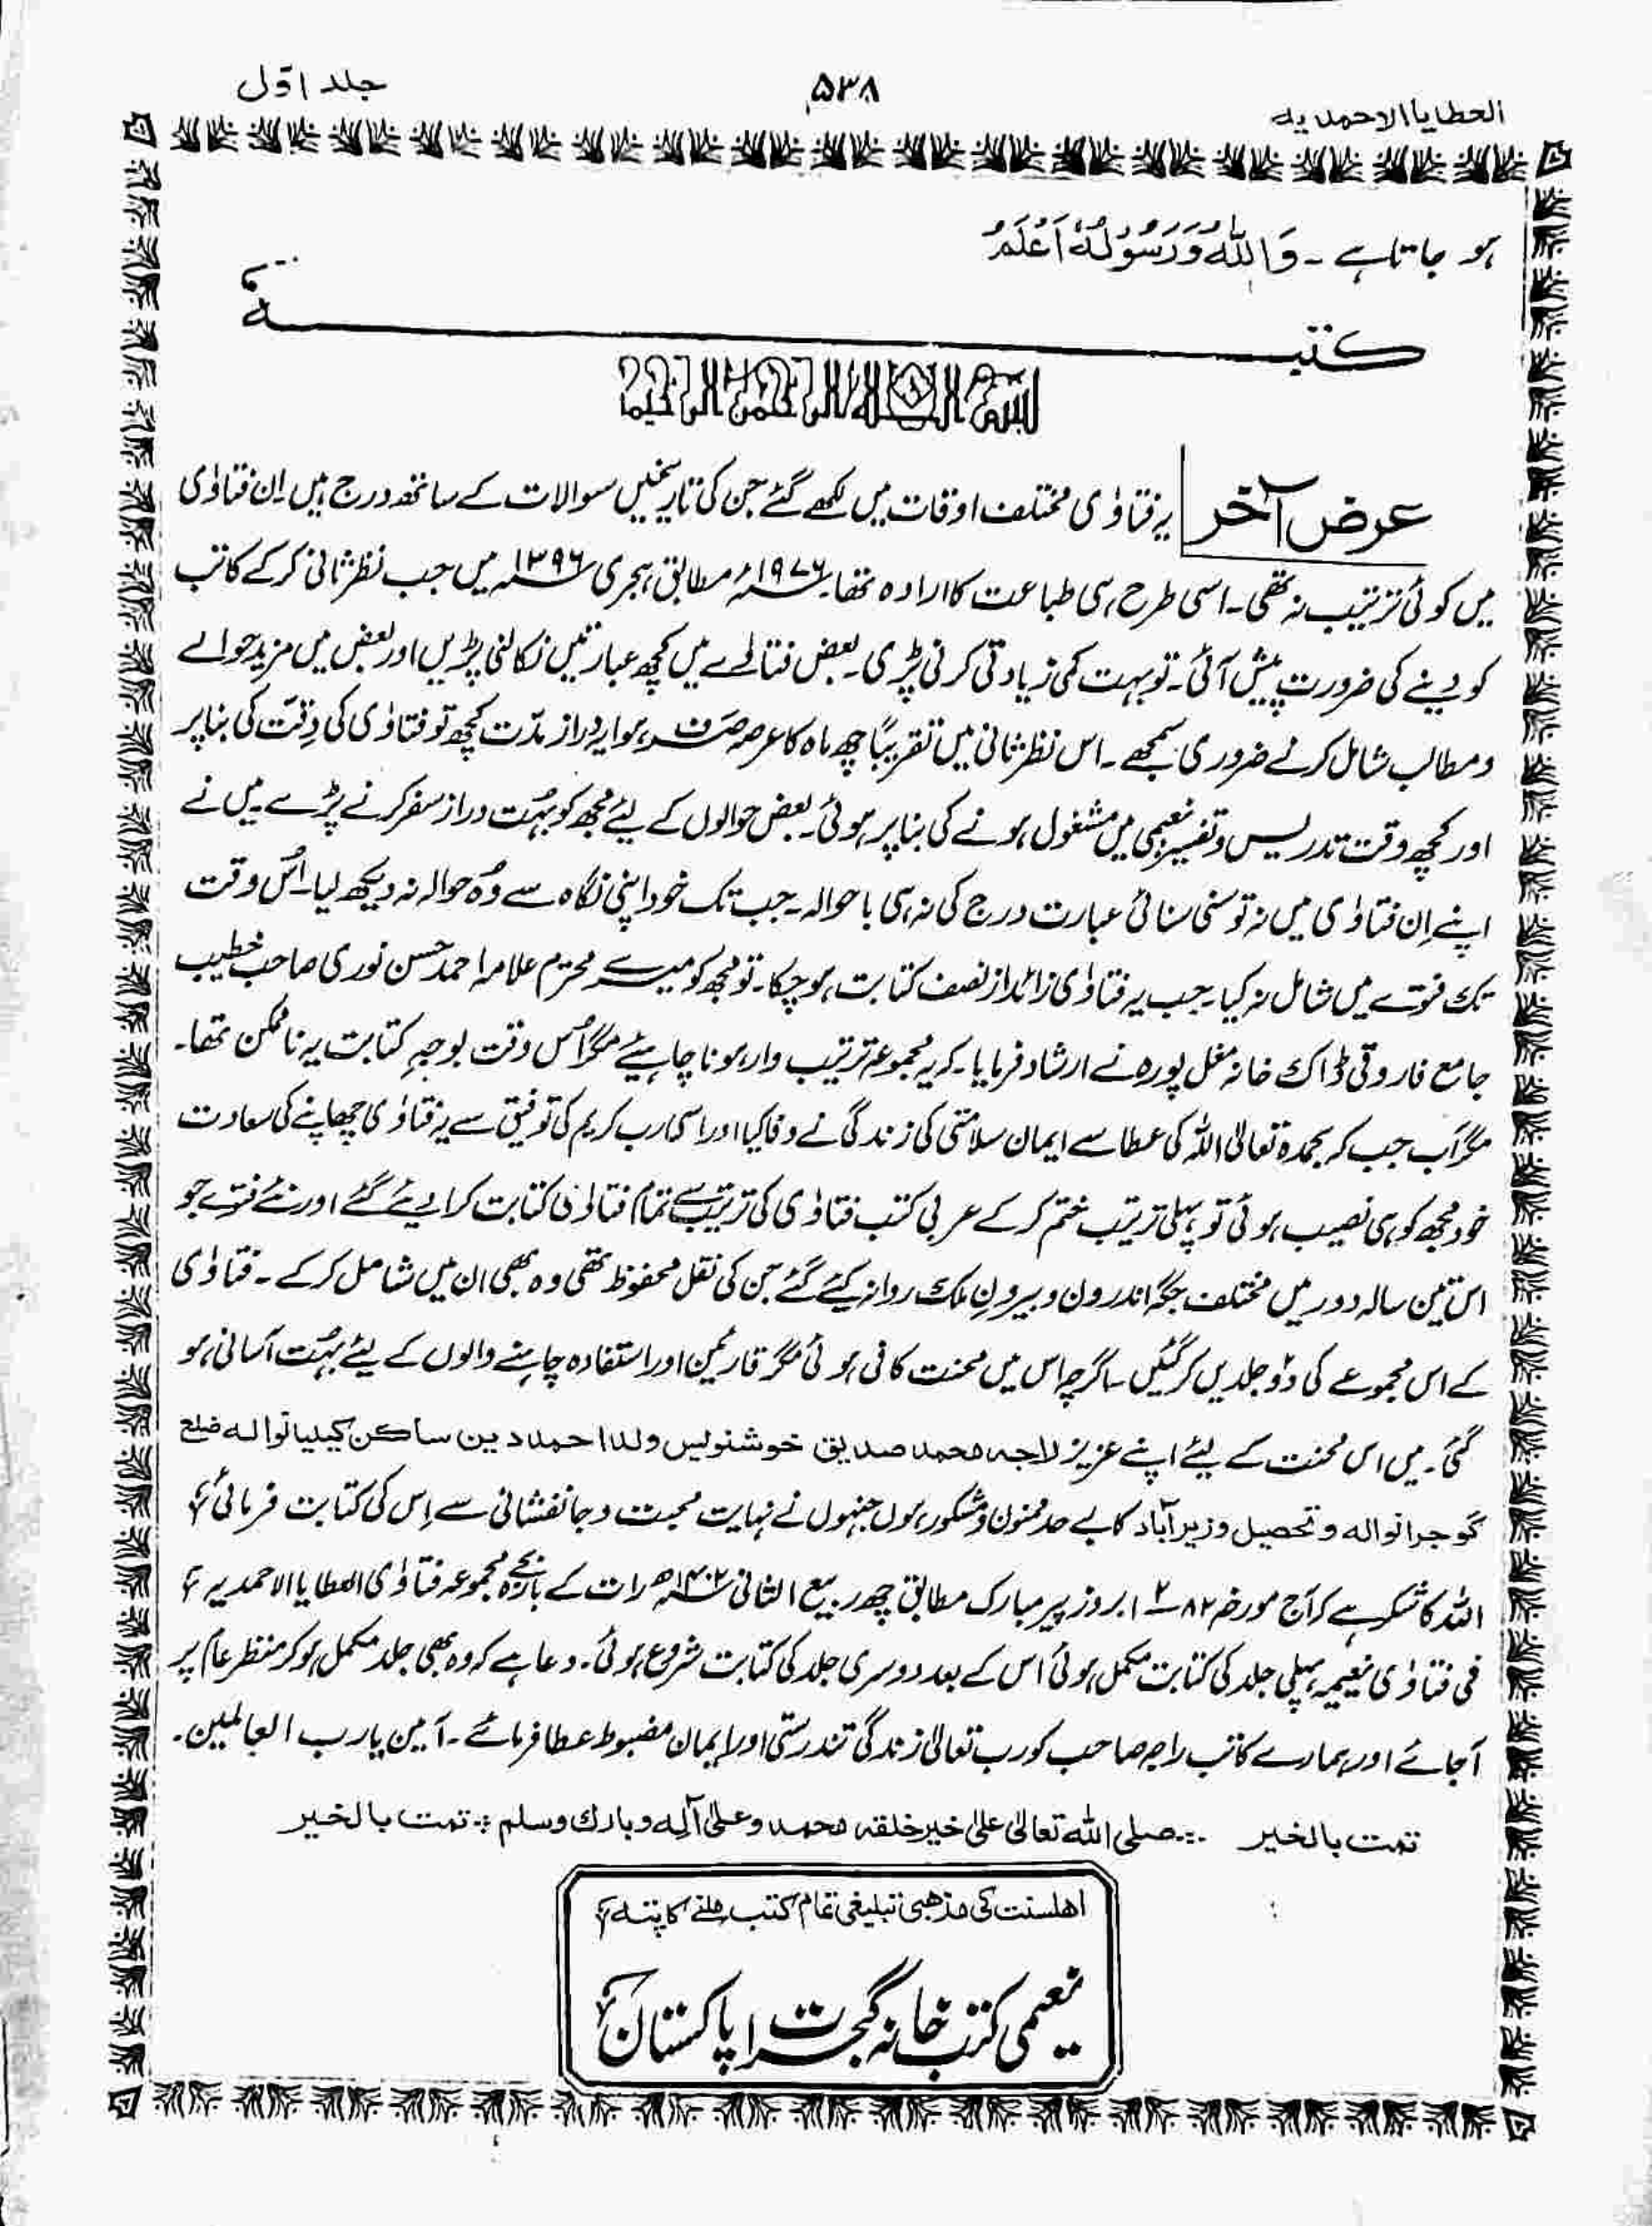 العطایا الاحمدیہ
۵۳۸
جلد اوّل
ہو جاتا ہے ۔ وَاللّٰہُ وَرَسُوْلُہٗ اَعْلَمُ
کتبـــــــــہ
بسم اللہ الرحمن الرحیم
عرض آخر یہ فتاوٰی مختلف اوقات میں لکھے گئے جن کی تاریخیں سوالات کے ساتھ درج ہیں اِن فتاوٰی
میں کوئی ترتیب نہ تھی۔ اسی طرح ہی طباعت کا ارادہ تھا۔ ۱۹۷۶ء مطابق ہجری ۱۳۹۶ھ میں جب نظر ثانی کر کے کاتب
کو دینے کی ضرورت پیش آئی۔ تو بہت کمی زیادتی کرنی پڑی۔ بعض فتاوے میں کچھ عبارتیں نکالنی پڑیں اور بعض میں مزید حوالے
و مطالب شامل کرنے ضروری سمجھے ۔ اس نظر ثانی میں تقریبًا چھ ماہ کا عرصہ صَرف ہوا یہ دراز مدّت کچھ تو فتاوٰی کی دِقّت کی بنا پر
اور کچھ وقت تدریس و تفسیر نعیمی میں مشغول ہونے کی بنا پر ہوئی۔ بعض حوالوں کے لیئے مجھ کو بہُت دراز سفر کرنے پڑے میں نے
اپنے اِن فتاوٰی میں نہ تو سنی سنائی عبارت درج کی نہ ہی با حوالہ ۔ جب تک خود اپنی نگاہ سے وُہ حوالہ نہ دیکھ لیا۔ اُس وقت
تک فتوے میں شامل نہ کیا۔ جب یہ فتاوٰی زائد از نصف کتابت ہو چکا۔ تو مجھ کو میرے محترم علامہ احمد حسن نوری صاحب خطیب
جامع فاروقی ڈاک خانہ مغل پورہ نے ارشاد فرمایا۔ کہ یہ مجموعہ ترتیب وار ہونا چاہیئے مگر اُس وقت بوجہِ کتابت یہ ناممکن تھا۔
مگر اَب جب کہ بحمدہٖ تعالیٰ اللہ کی عطا سے ایمان سلامتی کی زندگی نے وفا کیا اور اسی رب کریم کی توفیق سے یہ فتاوٰی چھاپنے کی سعادت
خود مجھ کو ہی نصیب ہوئی تو پہلی ترتیب ختم کر کے عربی کتب فتاوٰی کی ترتیب سے تمام فتاوٰی کتابت کرا دیئے گئے اور نئے فتوے جو
اس تین سالہ دور میں مختلف جگہ اندرون و بیرونِ ملک روانہ کیئے گئے جن کی نقل محفوظ تھی وہ بھی ان میں شامل کر کے ۔ فتاوٰی
کے اس مجموعے کی دوؔ جلدیں کر گئیں ۔ اگرچہ اس میں محنت کافی ہوئی مگر قارئین اور استفادہ چاہنے والوں کے لیئے بہُت آسانی ہو
گئی۔ میں اس محنت کے لیئے اپنے عزیز راجہ محمد صدیق خوشنویس ولد احمد دین ساکن کیلیانوالہ ضلع
گوجرانوالہ و تحصیل وزیر آباد کا بے حد ممنون و مشکور ہوں جنہوں نے نہایت محبت و جانفشانی سے اِس کی کتابت فرمائی
اللہ کا شکر ہے کہ آج مورخہ ۸۲-۲-۱ بروز پیر مبارک مطابق چھ ربیع الثانی ۱۴۰۲ھ رات کے بارہ بجے مجموعہ فتاوٰی العطایا الاحمدیہ
فی فتاوٰی نعیمیہ پہلی جلد کی کتابت مکمل ہوئی اس کے بعد دوسری جلد کی کتابت شروع ہوئی۔ دعا ہے کہ وہ بھی جلد مکمل ہو کر منظر عام پر
آجائے اور ہمارے کاتب راجہ صاحب کو رب تعالیٰ زندگی تندرستی اور ایمان مضبوط عطا فرمائے ۔ آمین یا رب العالمین۔
تمت بالخیر ۔:۔ صلی اللہ تعالیٰ علیٰ خیر خلقہ محمد وعلیٰ آلہٖ وبارک وسلم ؞ تمت بالخیر
اھلسنت کی مذھبی تبلیغی تمام کتب ملنے کا پتہ
نعیمی کتب خانہ گجرات پاکستان